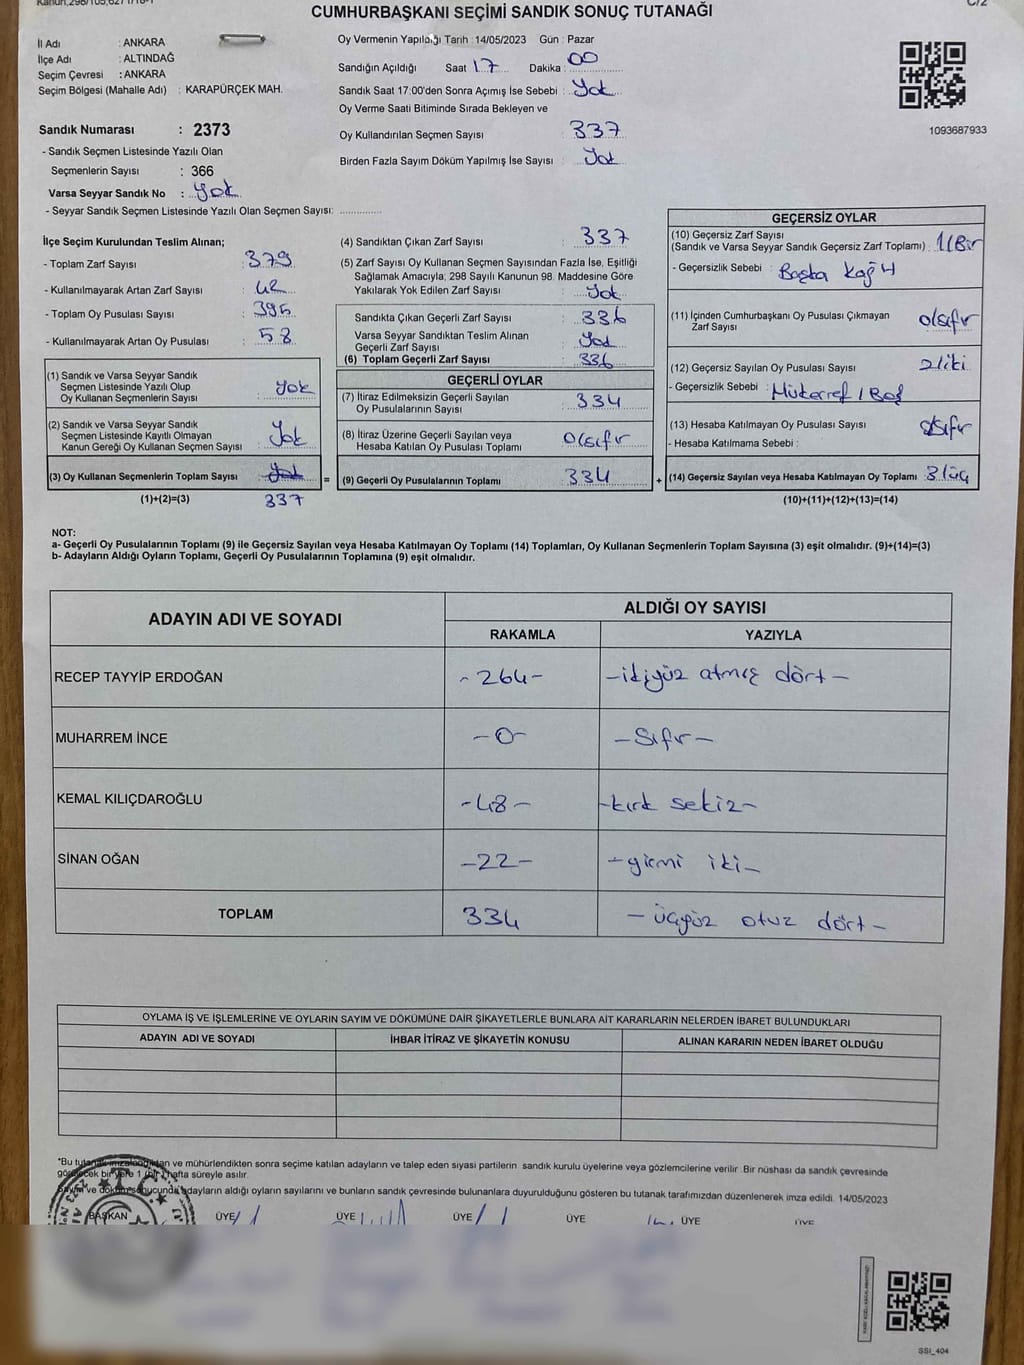 CUMHURBAŞKANI SEÇİMİ SANDIK SONUÇ TUTANAĞI
C/2
İl Adı : ANKARA
İlçe Adı : ALTINDAĞ
Seçim Çevresi : ANKARA
Seçim Bölgesi (Mahalle Adı) : KARAPÜRÇEK MAH.
Sandık Numarası : 2373
- Sandık Seçmen Listesinde Yazılı Olan
Seçmenlerin Sayısı : 366
Varsa Seyyar Sandık No : Yok
- Seyyar Sandık Seçmen Listesinde Yazılı Olan Seçmen Sayısı: ..............
Oy Vermenin Yapıldığı Tarih : 14/05/2023 Gün : Pazar
Sandığın Açıldığı Saat 17 Dakika : 00
Sandık Saat 17:00'den Sonra Açımış İse Sebebi : Yok
Oy Verme Saati Bitiminde Sırada Bekleyen ve
Oy Kullandırılan Seçmen Sayısı : 337
Birden Fazla Sayım Döküm Yapılmış İse Sayısı : Yok
1093687933
İlçe Seçim Kurulundan Teslim Alınan;
- Toplam Zarf Sayısı : 379
- Kullanılmayarak Artan Zarf Sayısı : 42
- Toplam Oy Pusulası Sayısı : 395
- Kullanılmayarak Artan Oy Pusulası : 58
(1) Sandık ve Varsa Seyyar Sandık
Seçmen Listesinde Yazılı Olup
Oy Kullanan Seçmenlerin Sayısı : Yok
(2) Sandık ve Varsa Seyyar Sandık
Seçmen Listesinde Kayıtlı Olmayan
Kanun Gereği Oy Kullanan Seçmen Sayısı : Yok
(3) Oy Kullanan Seçmenlerin Toplam Sayısı : Yok
(1)+(2)=(3) 337
(4) Sandıktan Çıkan Zarf Sayısı : 337
(5) Zarf Sayısı Oy Kullanan Seçmen Sayısından Fazla İse, Eşitliği
Sağlamak Amacıyla; 298 Sayılı Kanunun 98. Maddesine Göre
Yakılarak Yok Edilen Zarf Sayısı : Yok
Sandıkta Çıkan Geçerli Zarf Sayısı : 336
Varsa Seyyar Sandıktan Teslim Alınan
Geçerli Zarf Sayısı : Yok
(6) Toplam Geçerli Zarf Sayısı : 336
GEÇERLİ OYLAR
(7) İtiraz Edilmeksizin Geçerli Sayılan
Oy Pusulalarının Sayısı : 334
(8) İtiraz Üzerine Geçerli Sayılan veya
Hesaba Katılan Oy Pusulası Toplamı : 0/sıfır
= (9) Geçerli Oy Pusulalarının Toplamı : 334
GEÇERSİZ OYLAR
(10) Geçersiz Zarf Sayısı
(Sandık ve Varsa Seyyar Sandık Geçersiz Zarf Toplamı) : 1/Bir
- Geçersizlik Sebebi : Başka Kağıt
(11) İçinden Cumhurbaşkanı Oy Pusulası Çıkmayan
Zarf Sayısı 0/sıfır
(12) Geçersiz Sayılan Oy Pusulası Sayısı 2/iki
- Geçersizlik Sebebi : Mükerrer / Boş
(13) Hesaba Katılmayan Oy Pusulası Sayısı 0/sıfır
- Hesaba Katılmama Sebebi :
+ (14) Geçersiz Sayılan veya Hesaba Katılmayan Oy Toplamı 3/üç
(10)+(11)+(12)+(13)=(14)
NOT:
a- Geçerli Oy Pusulalarının Toplamı (9) ile Geçersiz Sayılan veya Hesaba Katılmayan Oy Toplamı (14) Toplamları, Oy Kullanan Seçmenlerin Toplam Sayısına (3) eşit olmalıdır. (9)+(14)=(3)
b- Adayların Aldığı Oyların Toplamı, Geçerli Oy Pusulalarının Toplamına (9) eşit olmalıdır.
ADAYIN ADI VE SOYADI ALDIĞI OY SAYISI
RAKAMLA YAZIYLA
RECEP TAYYİP ERDOĞAN -264- -ikiyüz atmış dört-
MUHARREM İNCE -0- -Sıfır-
KEMAL KILIÇDAROĞLU -48- -kırk sekiz-
SİNAN OĞAN -22- -yirmi iki-
TOPLAM 334 -üçyüz otuz dört-
OYLAMA İŞ VE İŞLEMLERİNE VE OYLARIN SAYIM VE DÖKÜMÜNE DAİR ŞİKAYETLERLE BUNLARA AİT KARARLARIN NELERDEN İBARET BULUNDUKLARI
ADAYIN ADI VE SOYADI İHBAR İTİRAZ VE ŞİKAYETİN KONUSU ALINAN KARARIN NEDEN İBARET OLDUĞU
*Bu ve mühürlendikten sonra seçime katılan adayların ve talep eden siyasi partilerin sandık kurulu üyelerine veya gözlemcilerine verilir. Bir nüshası da sandık çevresinde
hafta süreyle asılır.
adayların aldığı oyların sayılarını ve bunların sandık çevresinde bulunanlara duyurulduğunu gösteren bu tutanak tarafımızdan düzenlenerek imza edildi. 14/05/2023
BAŞKAN ÜYE ÜYE ÜYE ÜYE ÜYE ÜYE
T.C.
SSİ_404